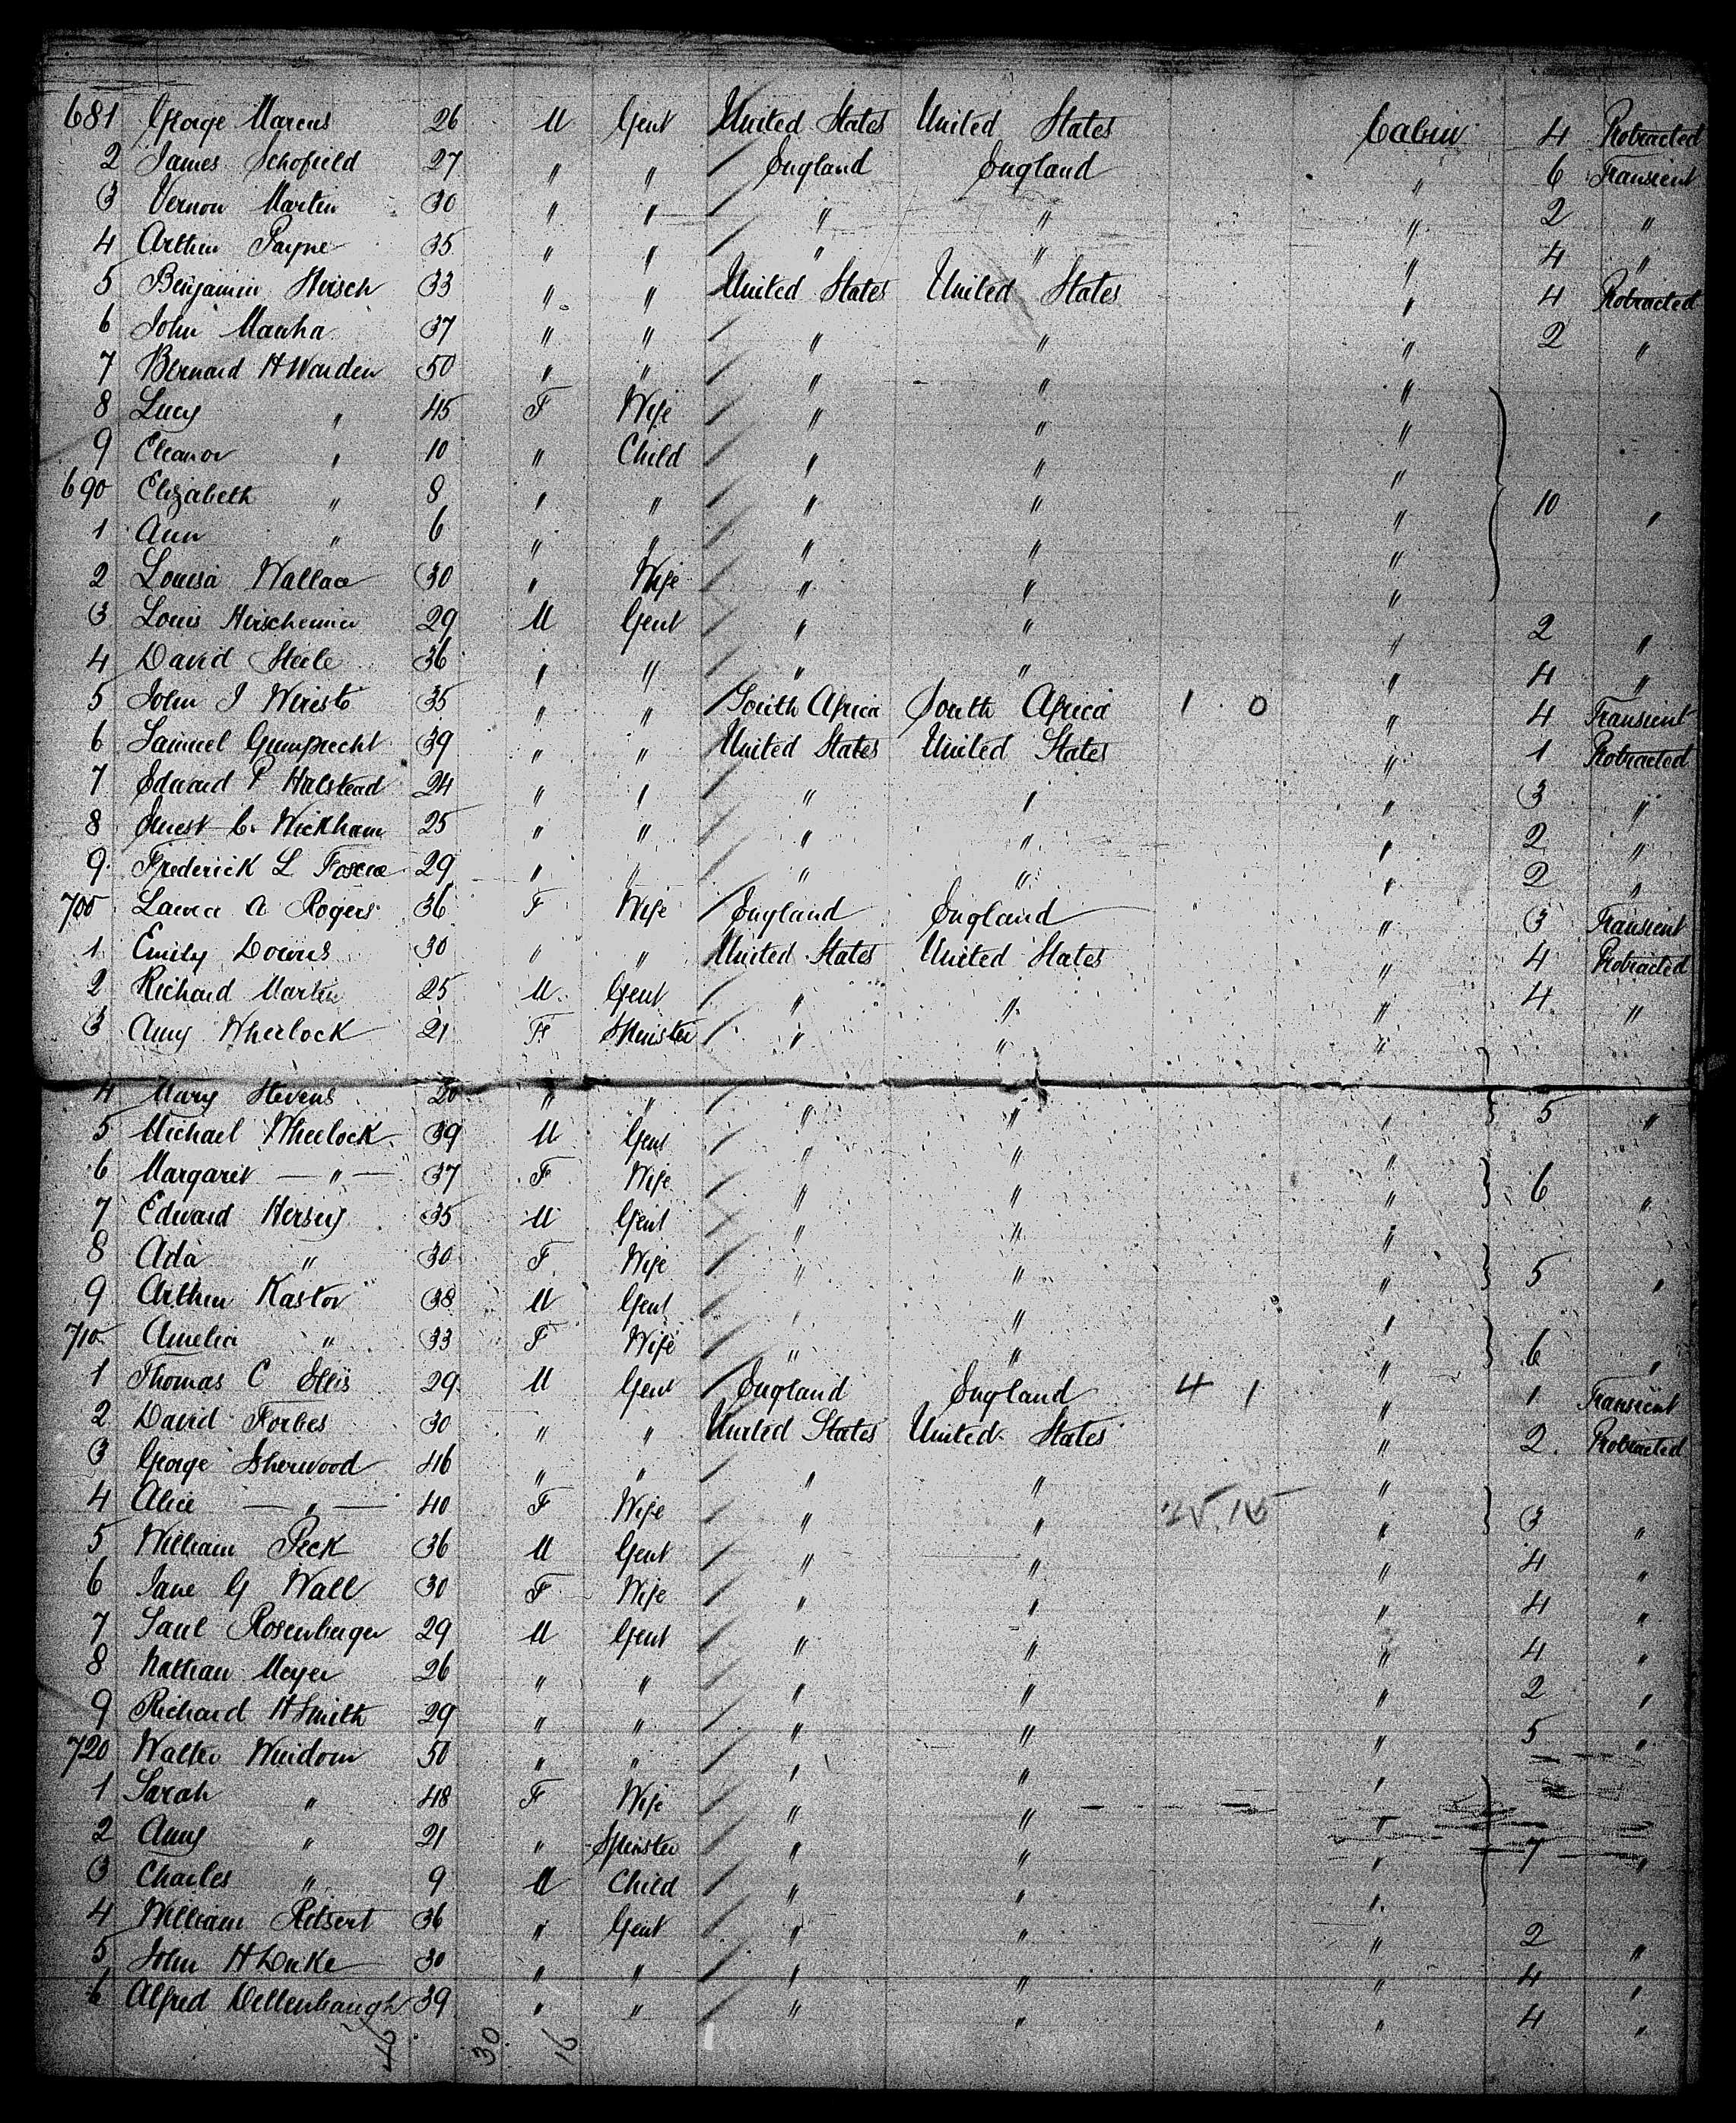 681 George Marcus 26 M Gent United States United States Cabin 4 Protracted
2 James Schofield 27 " " England England " 6 Transient
3 Vernon Martin 30 " " " " " 2 "
4 Arthur Payne 35 " " " " " 4 "
5 Benjamin Hirsch 33 " " United States United States " 4 Protracted
6 John 37 " " " " " 2 "
7 Bernard H Warden 50 " " " " "
8 Lucy " 45 F Wife " " "
9 Eleanor " 10 " Child " " "
690 Elizabeth " 8 " " " " " 10 "
1 Ann " 6 " " " " "
2 Louisa Wallace 30 " Wife " " "
3 Louis 29 M Gent " " " 2 "
4 David Steele 36 " " " " " 4 "
5 John J 35 " " South Africa South Africa 1 0 " 4 Transient
6 Samuel Gumprecht 39 " " United States United States " 1 Protracted
7 Edward P Halstead 24 " " " " " 3 "
8 C. Wickham 25 " " " " " 2 "
9 Frederick L 29 " " " " " 2 "
700 Laura A Rogers 36 F Wife England England " 3 Transient
1 Emily Downs 30 " " United States United States " 4 Protracted
2 Richard Martin 25 M Gent " " " 4 "
3 Amy Wheelock 21 F Spinster " " "
4 Mary Stevens 20 " " " " " 5 "
5 Michael Wheelock 39 M Gent " " "
6 Margaret — " — 37 F Wife " " " 6 "
7 Edward Hersey 35 M Gent " " "
8 Ada " 30 F Wife " " " 5 "
9 Arthur Kastor 38 M Gent " " "
710 Amelia " 33 F Wife " " " 6 "
1 Thomas C Ellis 29 M Gent England England 4 1 " 1 Transient
2 David Forbes 30 " " United States United States " 2 Protracted
3 George Isherwood 46 " " " " "
4 Alice — " — 40 F Wife " " 25.15 " 3 "
5 William Peck 36 M Gent " " " 4 "
6 Jane G Wall 30 F Wife " " " 4 "
7 Saul Rosenberger 29 M Gent " " " 4 "
8 Nathan Meyer 26 " " " " " 2 "
9 Richard H Smith 29 " " " " " 5 "
720 Walter Windom 50 " " " " "
1 Sarah " 48 F Wife " " "
2 Amy " 21 " Spinster " " " 7 "
3 Charles " 9 M Child " " "
4 William Ritsert 36 " Gent " " " 2 "
5 John H Duke 30 " " " " " 4 "
6 Alfred Dellenbaugh 39 " " " " " 4 "
46 30 16